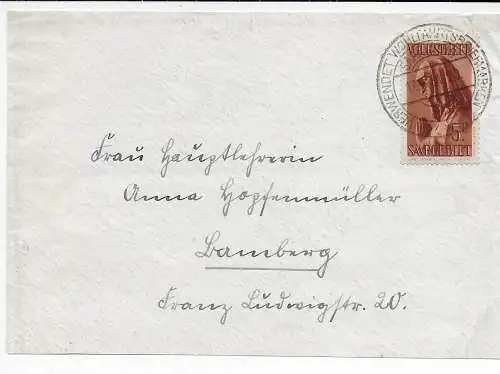 VERWENDET WOHLFAHRTSBRIEFMARKEN
VOLKSHILFE
SAARGEBIET
Frau Hauptlehrerin
Anna Hopfenmüller
Bamberg
Franz Ludwigstr. 20.